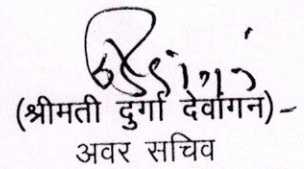 (श्रीमती दुर्गा देवांगन)-
अवर सचिव